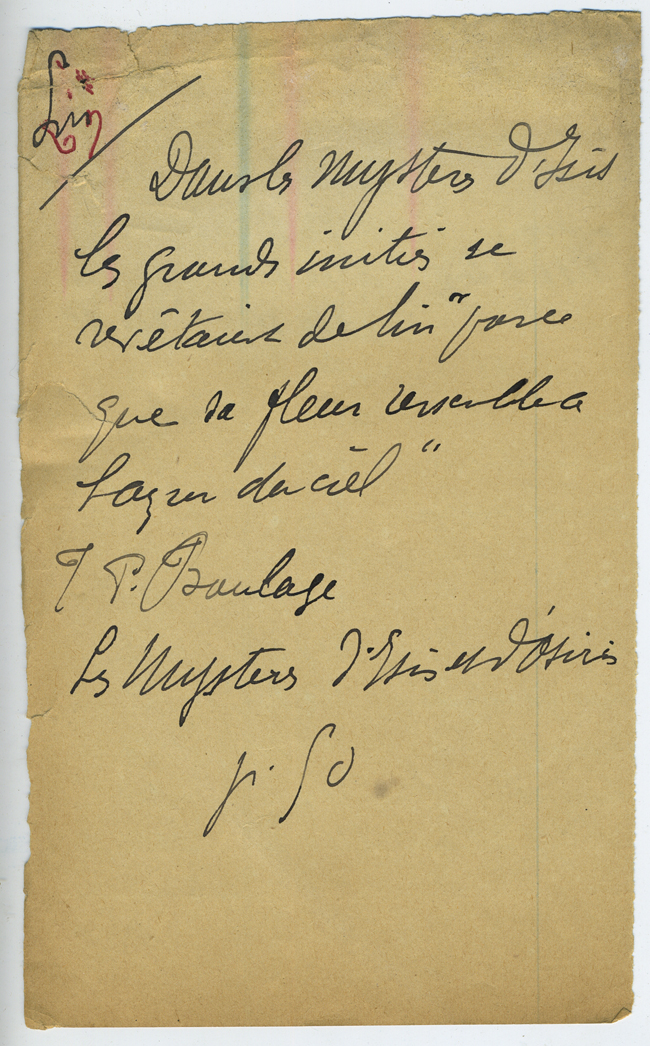 Lin
Dans les Mystères d'Isis
les grands initiés se
revêtaient de lin "parce
que sa fleur ressemble a
l'azur du ciel"
T P. Boulage
Les Mystères d'Isis et d'Osiris
p. 50